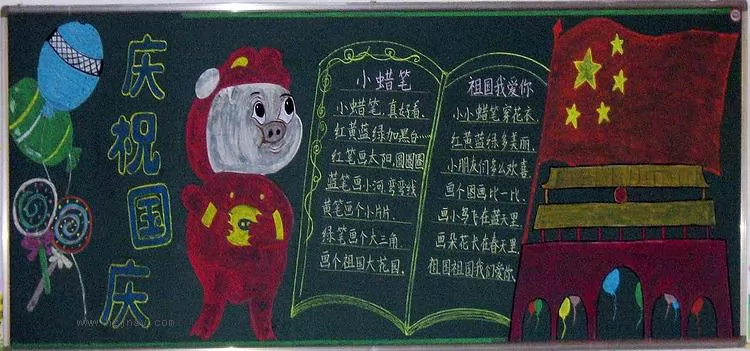 庆祝国庆
小蜡笔
小蜡笔,真好看,
红黄蓝绿加黑白……
红笔画太阳,圆圆圆
蓝笔画小河,弯弯线
黄笔画个小片片,
绿笔画个大三角
画个祖国大花园,
祖国我爱你
小小蜡笔穿花衣,
红黄蓝绿多美丽,
小朋友们多么欢喜
画个图画比一比,
画小鸟飞在蓝天里,
画朵花长在春天里,
祖国祖国我们爱你